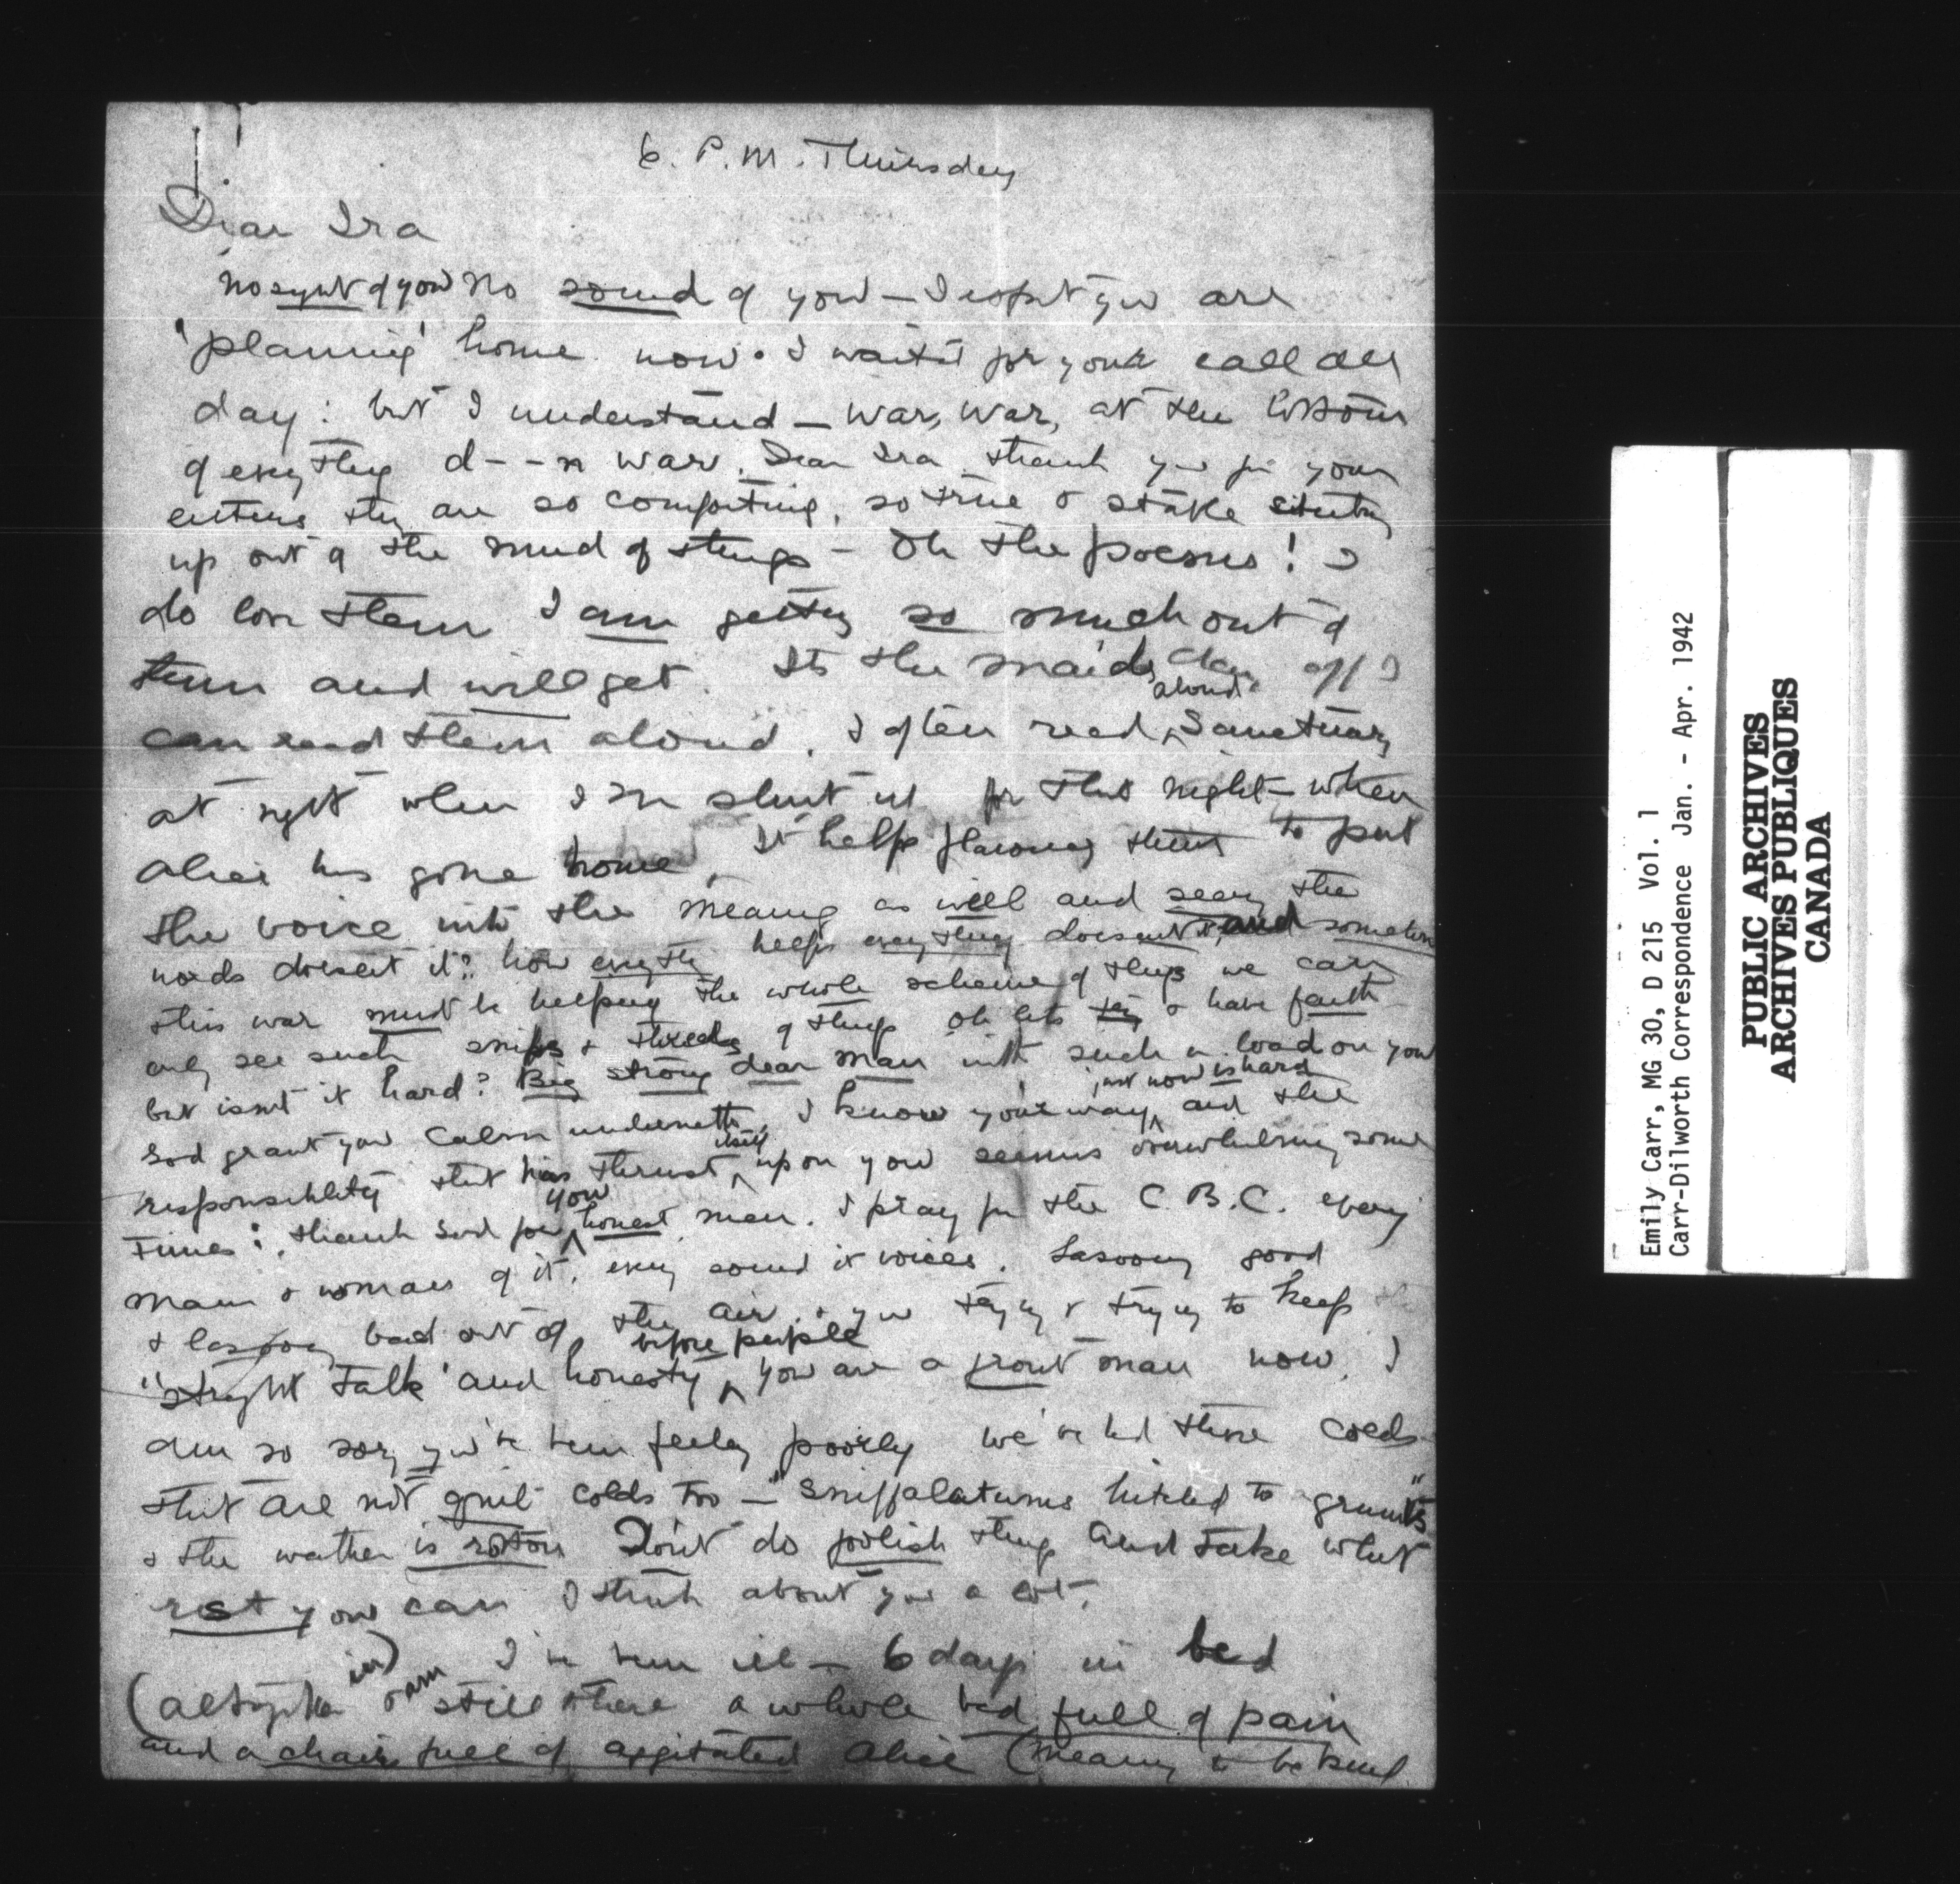 6. P.M. Thursday
Dear Ira
No syht of you No sound of you — I expect you are
'planing' home now. I waited for your call all
day: but I understand — war, war, at the bottom
of everything d--n war. Dear Ira thank you for your
letters they are so comforting, so true & stake
up out of the mud of things — Oh the poems! I
do love them I am getting so much out of
them and will get. Its the maids day off I
can read them aloud. I often read aloud Sanctuary
at night when I'm shut up for the night — when
Alice has gone home. It helps to put
the voice into the meaning as well and seeing the
words doesent it? how everything helps everything doesent it, and somehow
this war must be helping the whole scheme of things we can
only see such snips & threads of things oh lets try & have faith
but isn't it hard? Big strong dear man with such a load on you
God grant you calm underneath. I know your way just now is hard and the
responsibility that has thrust itself upon you seems overwhelming some
times: thank God for you honest men. I pray for the C.B.C. every
man & woman of it, every sound it voices. Lasooing good
& lasooing bad out of the air, & you trying & trying to keep the
"straght talk" and honesty before people you are a front man now, I
am so sorry you've been feeling poorly we've had these colds
that are not quit colds too — "sniffalatums hitched to grunts"
& the weather is rotton Don't do foolish things and take what
rest you can I think about you a lot.
I've been ill — 6 days in bed
(altogether in) & am still there a whole bed full of pain
and a chair full of aggitated Alice (meaning to be kind
Emily Carr, MG 30, D 215 Vol. 1
Carr-Dilworth Correspondence Jan. - Apr. 1942
PUBLIC ARCHIVES
ARCHIVES PUBLIQUES
CANADA